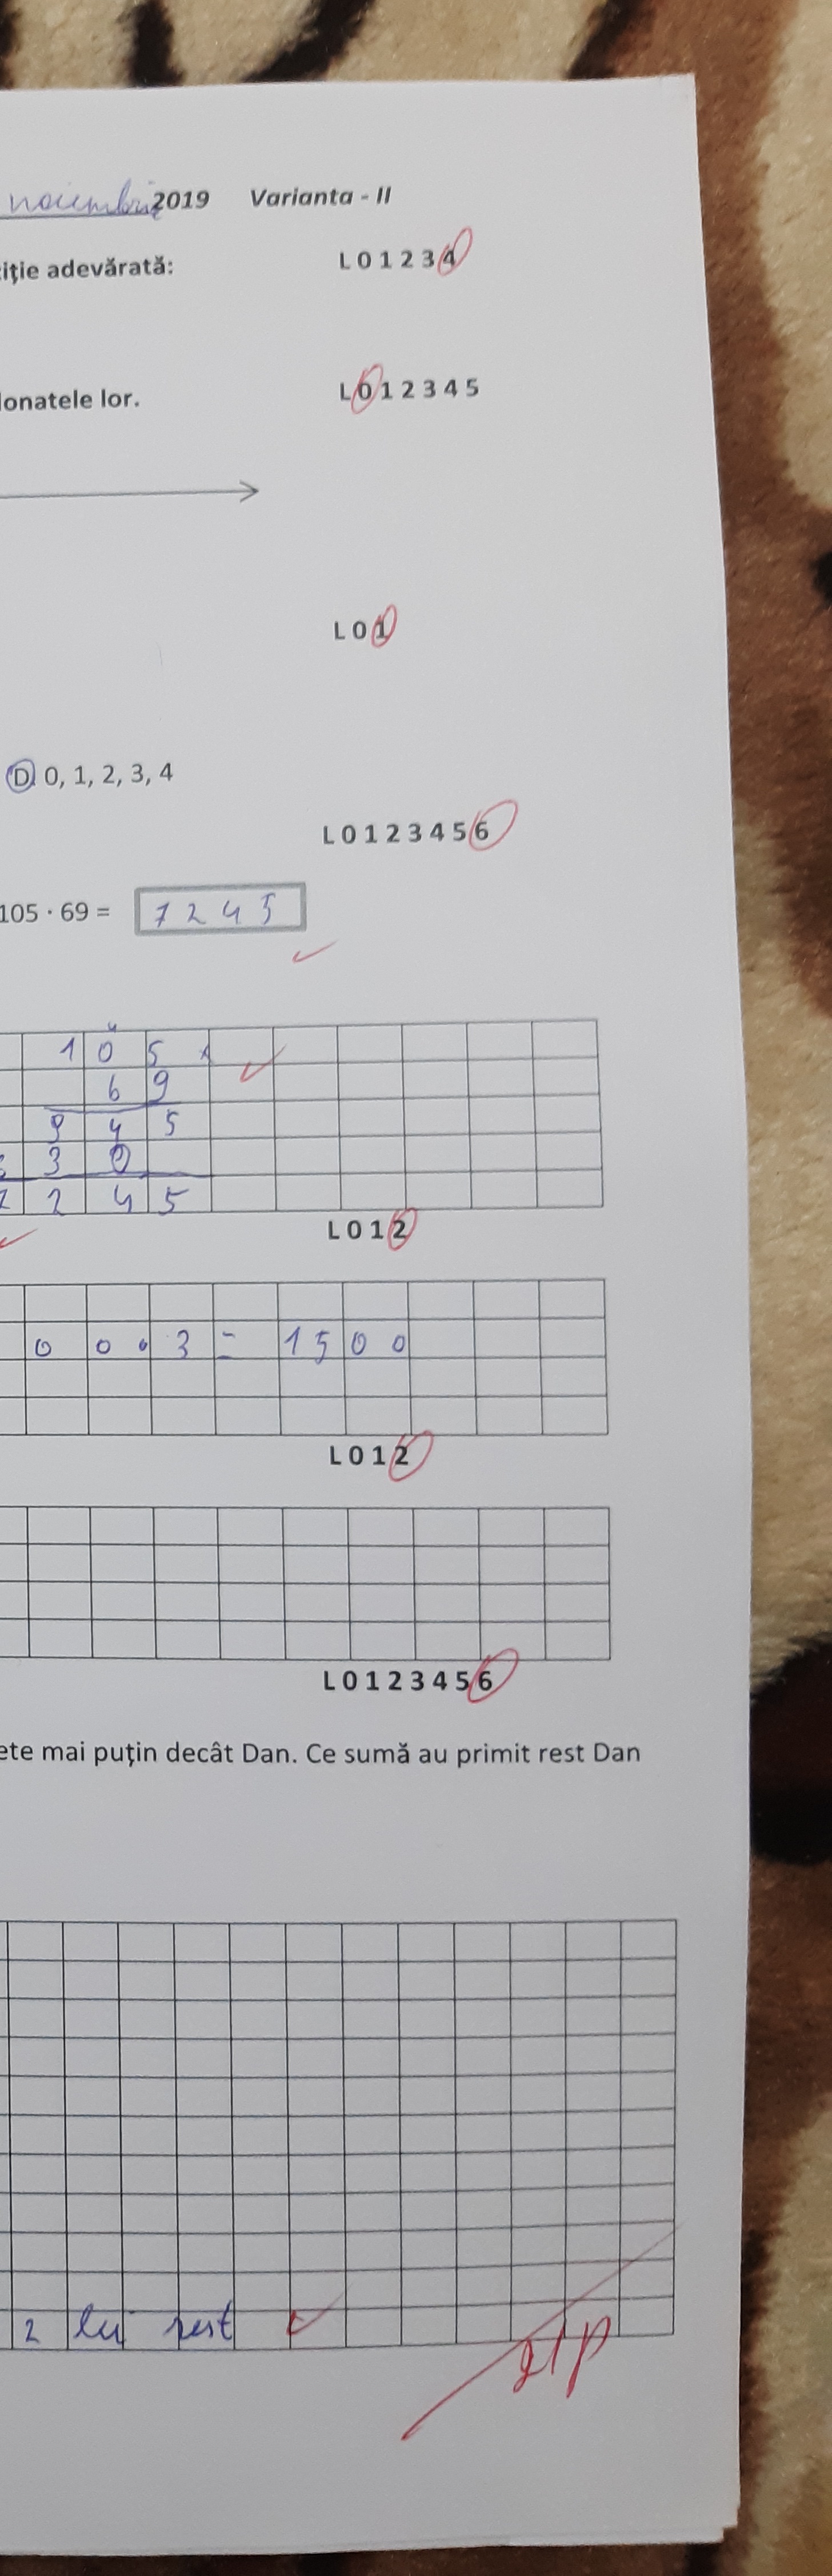 noiembrie 2019 Varianta - II
iție adevărată:
L 0 1 2 3 4
donatele lor.
L 0 1 2 3 4 5
L 0 1
D. 0, 1, 2, 3, 4
L 0 1 2 3 4 5 6
105 · 69 = 7245
4
1 0 5 x
6 9
9 4 5
6 3 0
7 2 4 5
L 0 1 2
0 0 · 3 = 1 5 0 0
L 0 1 2
L 0 1 2 3 4 5 6
ete mai puțin decât Dan. Ce sumă au primit rest Dan
2 lei rest
21p